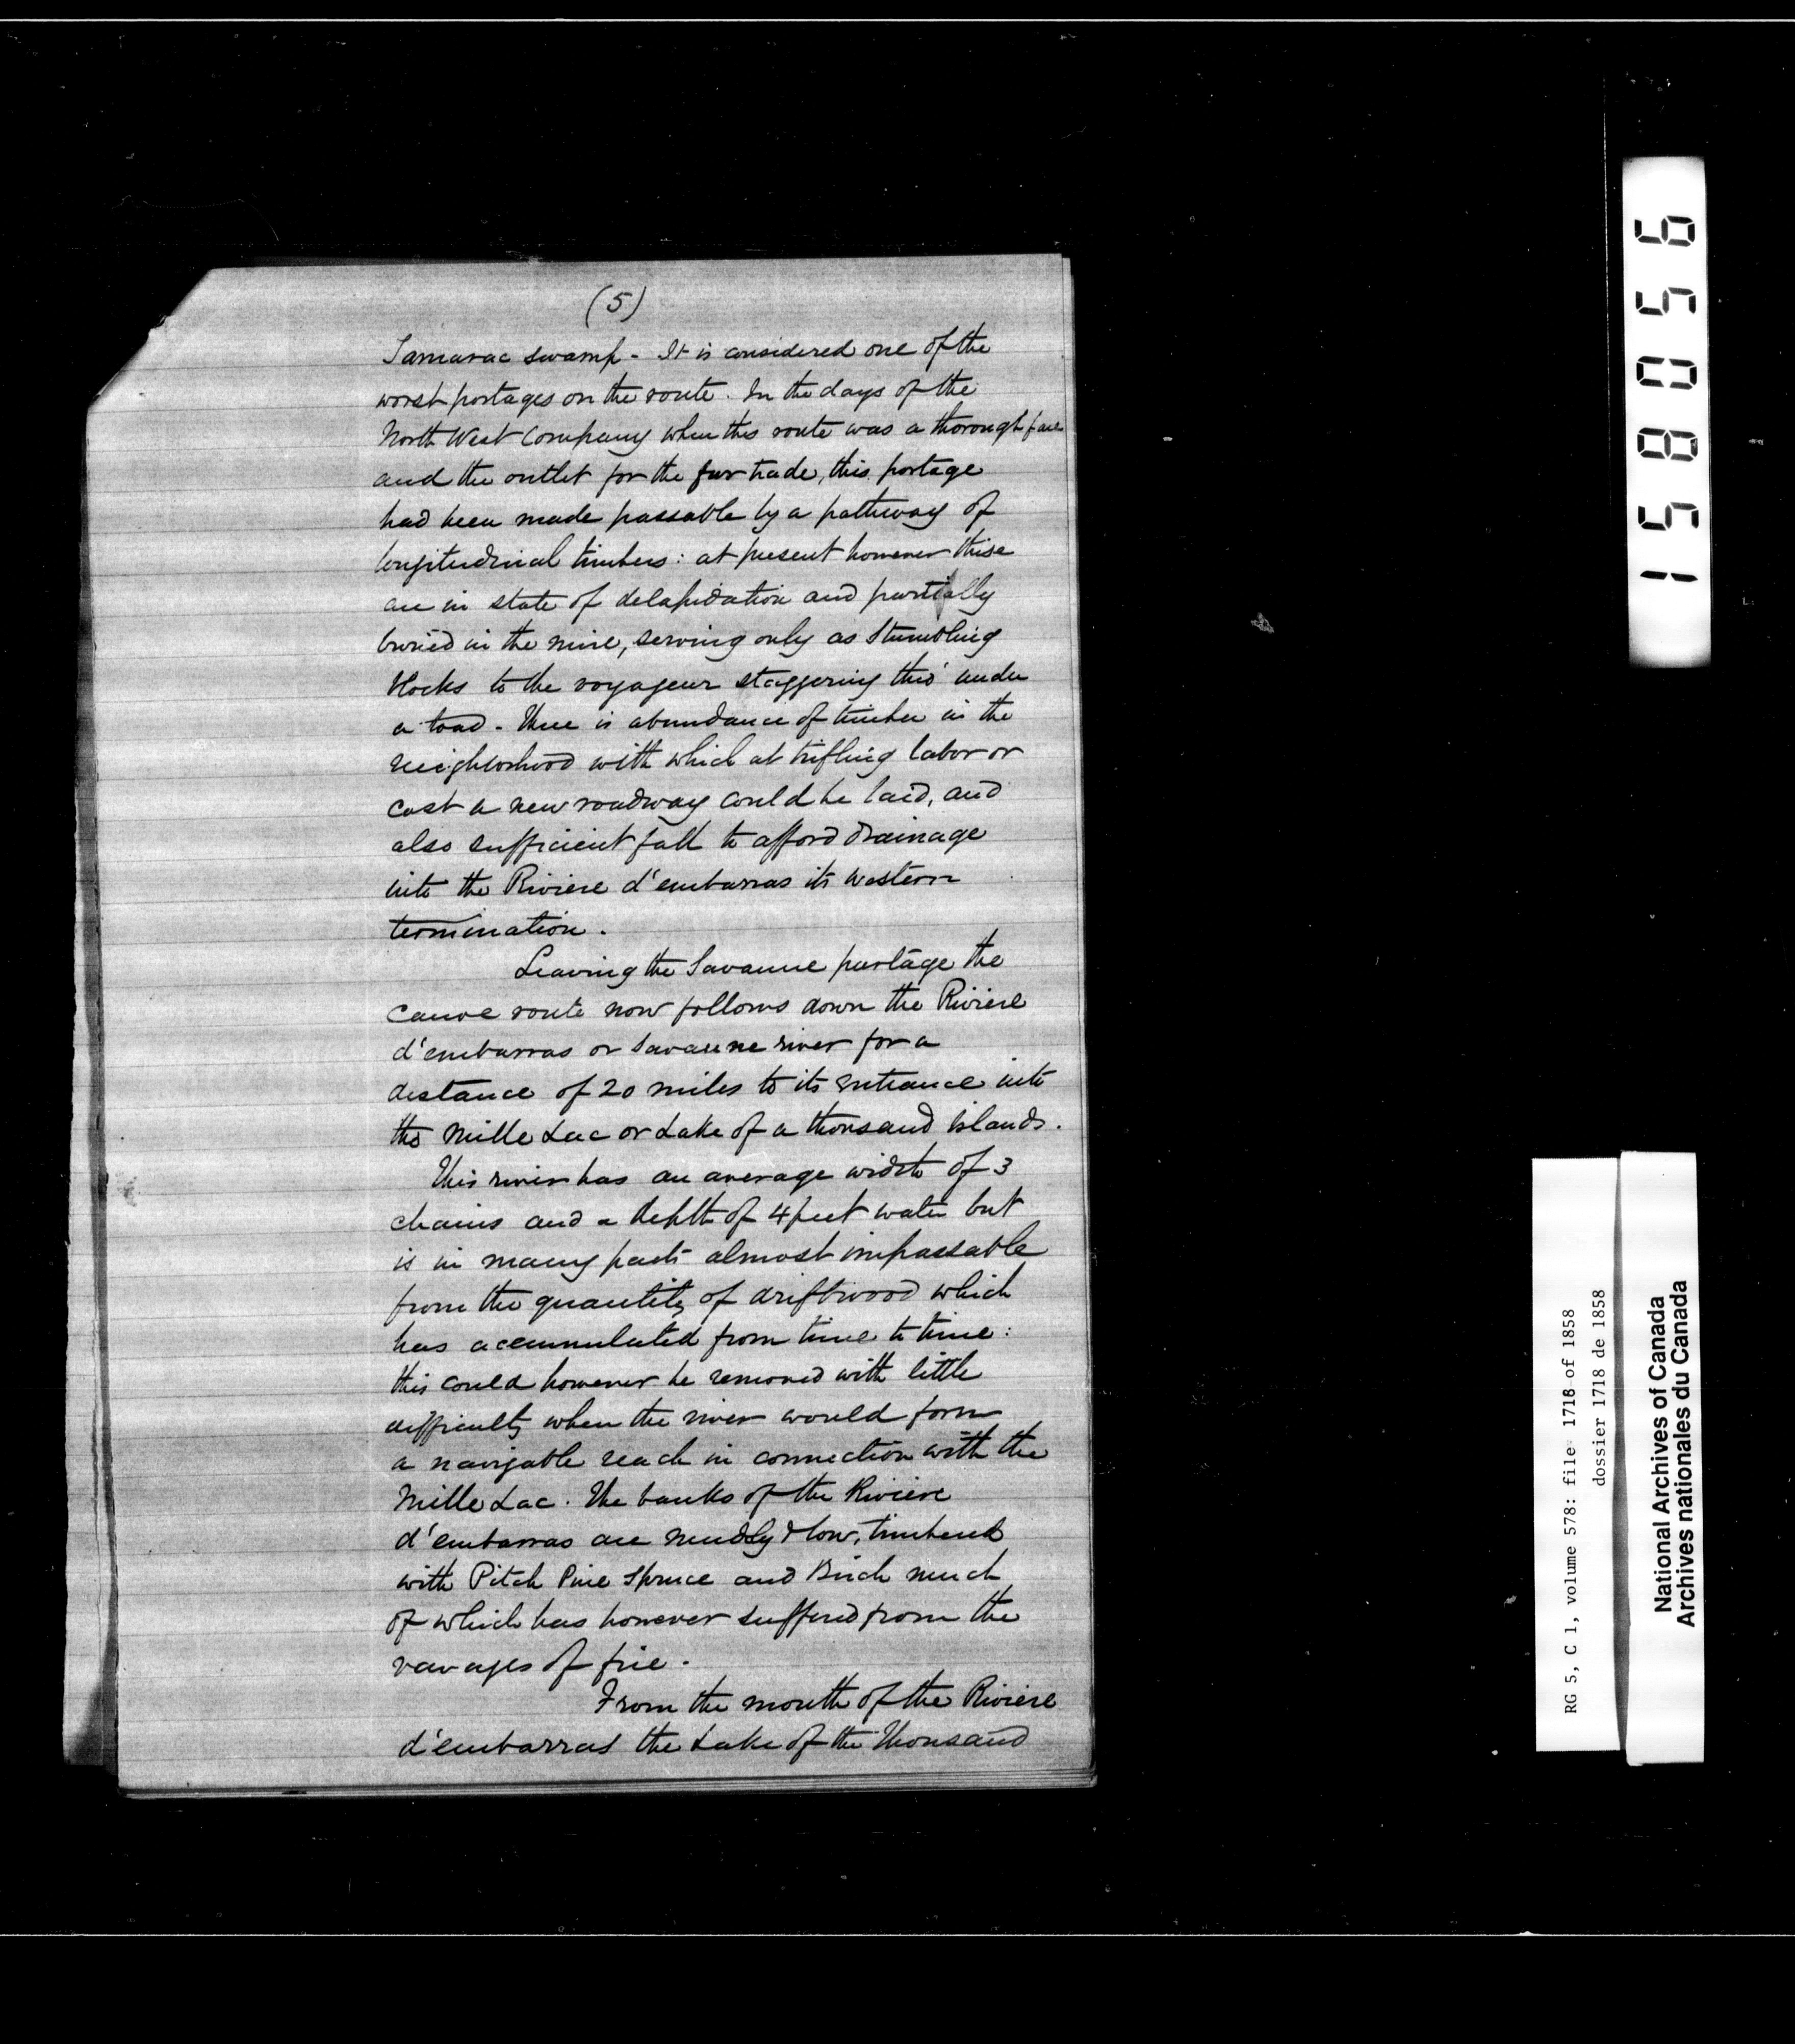 (5)
Tamarac swamp - It is considered one of the
worst portages on the route. In the days of the
North West Company when this route was a thorough fare
and the outlet for the fur trade, this portage
had been made passable by a pathway of
longitudinal timbers: at present however these
are in state of delapidation and partially
buried in the mire, serving only as Stumbling
blocks to the voyageur staggering thro' under
a load - There is abundance of timber in the
neighborhood with which at trifling labor or
cost a new roadway could be laid, and
also sufficient fall to afford drainage
into the Riviere d'embarras its western
termination.
Leaving the Savanne portage the
canoe route now follows down the Riviere
d'embarras or Savanne river for a
distance of 20 miles to its entrance into
the Mille Lac or Lake of a thousand Islands.
This river has an average width of 3
chains and a depth of 4 feet water but
is in many parts almost impassable
from the quantity of driftwood which
has accumulated from time to time:
this could however be removed with little
difficulty when the river would form
a navigable reach in connection with the
Mille Lac. The banks of the Riviere
d'embarras are muddy & low, timbered
with Pitch Pine Spruce and Birch much
of which has however suffered from the
ravages of fire.
From the mouth of the Riviere
d'embarras the Lake of the Thousand
158056
RG 5, C 1, volume 578: file 1718 of 1858
dossier 1718 de 1858
National Archives of Canada
Archives nationales du Canada